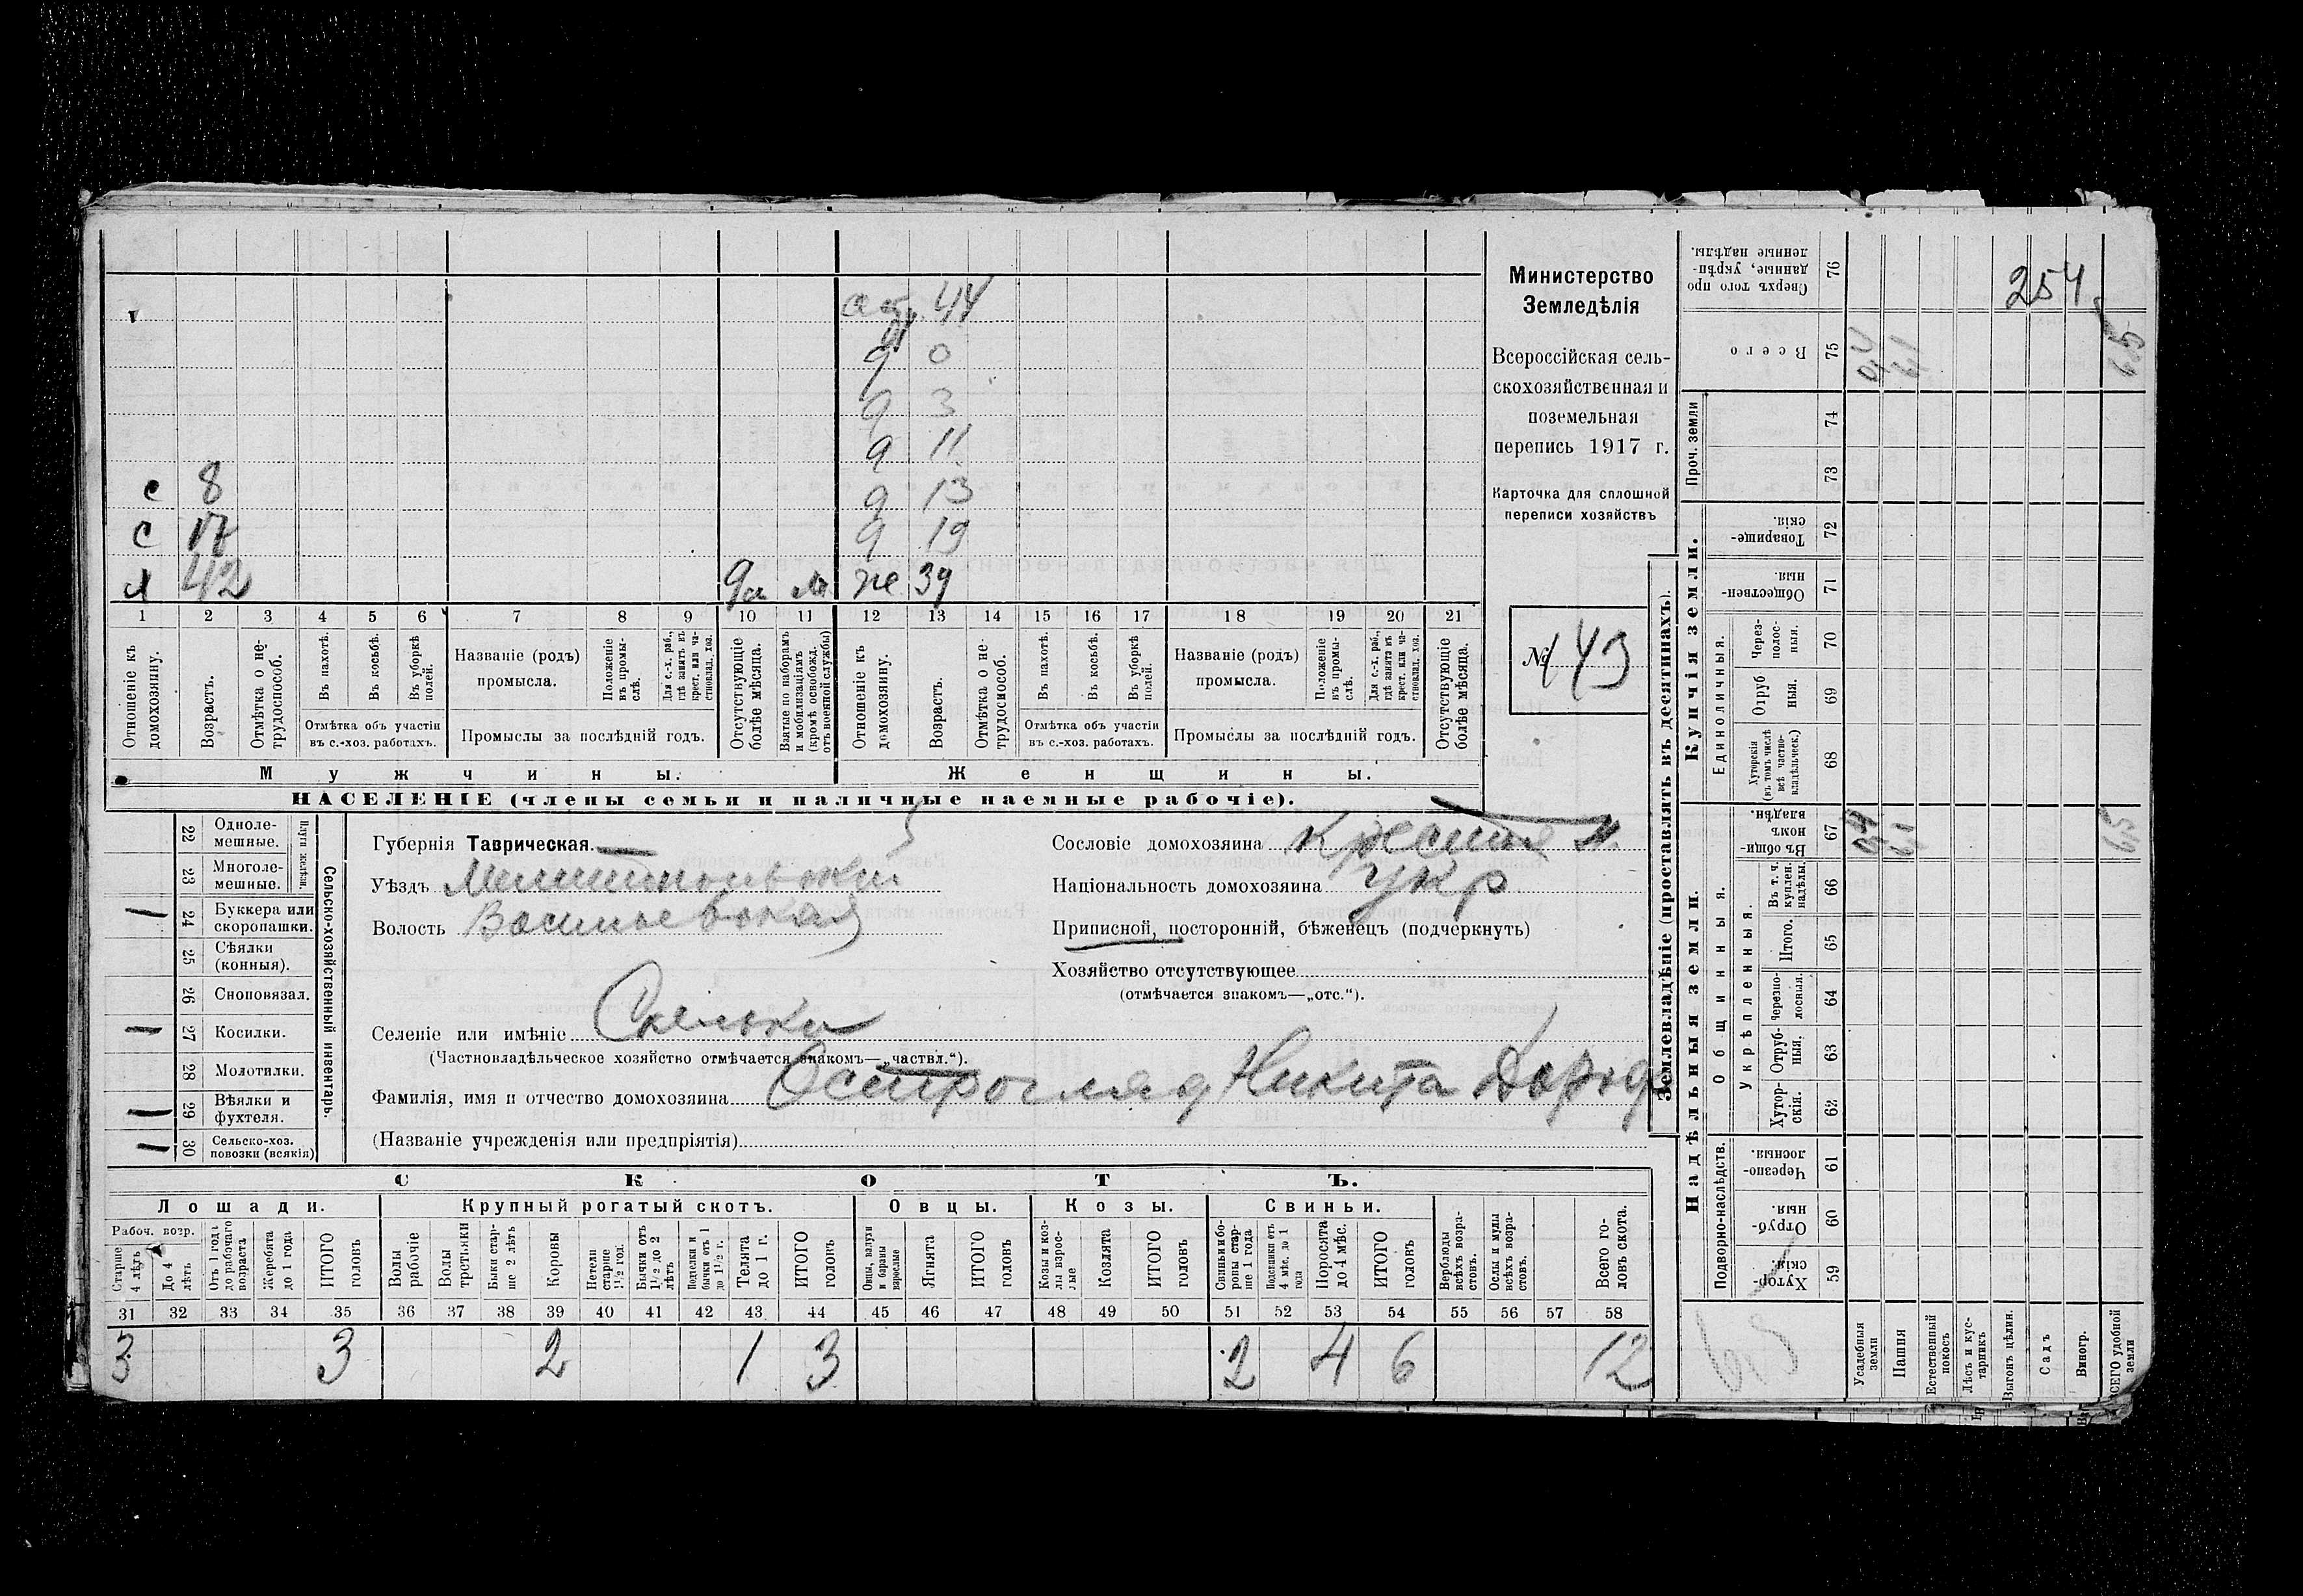 254
аб. 44
д 0
д 3
д 11
с 8 д 13
с 17 д 19
я 42 да же 39
1 2 3 4 5 6 7 8 9 10 11 12 13 14 15 16 17 18 19 20 21
Отношеніе къ домохозяину.
Возрастъ.
Отмѣтка о не-трудоспособ.
Въ пахотѣ.
Въ косьбѣ.
Въ уборкѣ полей.
Отмѣтка объ участіи
въ с.-хоз. работахъ.
Названіе (родъ)
промысла.
Положеніе въ промы-слѣ.
Для с.-х. раб., гдѣ занятъ въ крест. или ча-стновлад. хоз.
Промыслы за послѣдній годъ.
Отсутствующіе болѣе мѣсяца.
Взятые по наборамъ и мобилизаціямъ (кромѣ освобожд. отъ военной службы)
Отношеніе къ домохозяину.
Возрастъ.
Отмѣтка о не-трудоспособ.
Въ пахотѣ.
Въ косьбѣ.
Въ уборкѣ полей.
Отмѣтка объ участіи
въ с.-хоз. работахъ.
Названіе (родъ)
промысла.
Положеніе въ промы-слѣ.
Для с.-х. раб., гдѣ занята въ крест. или ча-стновлад. хоз.
Промыслы за послѣдній годъ.
Отсутствующіе болѣе мѣсяца.
Мужчины.
Женщины.
НАСЕЛЕНІЕ (члены семьи и наличные наемные рабочіе).
Министерство
Земледѣлія
Всероссійская сель-
скохозяйственная и
поземельная
перепись 1917 г.
Карточка для сплошной
переписи хозяйствъ
№ 143
22 Одноле-мешные.
23 Многоле-мешные.
Плуги желѣзн.
24 Буккера или скоропашки.
25 Сѣялки (конныя).
26 Сноповязал.
27 Косилки.
28 Молотилки.
29 Вѣялки и фухтеля.
30 Сельско-хоз. повозки (всякія)
Сельско-хозяйственный инвентарь.
Губернія Таврическая.
Уѣздъ Мелитопольскій
Волость Васильевская
Селеніе или имѣніе Скельки
(Частновладѣльческое хозяйство отмѣчается знакомъ—„частвл.“).
Фамилія, имя и отчество домохозяина Остроглядъ Никита Дороф
(Названіе учрежденія или предпріятія)
Сословіе домохозяина Крестьян
Національность домохозяина укр
Приписной, посторонній, бѣженецъ (подчеркнуть)
Хозяйство отсутствующее
(отмѣчается знакомъ—„отс.“).
СКОТЪ.
Лошади. Крупный рогатый скотъ. Овцы. Козы. Свиньи.
Рабоч. возр.
Старше 4 лѣтъ
До 4 лѣтъ
Отъ 1 года до рабочаго возраста
Жеребята до 1 года
ИТОГО головъ
Волы рабочіе
Волы третьяки
Быки стар-ше 2 лѣтъ
Коровы
Нетели старше 1½ год.
Бычки отъ 1½ до 2 лѣтъ
Подтелки и бычки отъ 1 до 1½ г.
Телята до 1 г.
ИТОГО головъ
Овцы, валухи и бараны взрослые
Ягнята
ИТОГО головъ
Козы и коз-лы взрос-лые
Козлята
ИТОГО головъ
Свиньи и бо-ровы стар-ше 1 года
Подсвинки отъ 4 мѣс. до 1 года
Поросята до 4 мѣс.
ИТОГО головъ
Верблюды всѣхъ возра-стовъ.
Ослы и мулы всѣхъ возра-стовъ.
Всего го-ловъ скота.
31 32 33 34 35 36 37 38 39 40 41 42 43 44 45 46 47 48 49 50 51 52 53 54 55 56 57 58
3 3 2 1 3 2 4 6 12
Землевладѣніе (проставлять въ десятинахъ).
Купчія земли.
Надѣльныя земли.
Сверхъ того про-данные, укрѣп-ленные надѣлы. 76
Всего 75 0,4 61 65
Проч. земли 74
73
Товарище-скія. 72
Обществен-ныя. 71
Единоличныя.
Через-полос-ныя. 70
Отруб-ныя. 69
Хуторскія (въ томъ числѣ всѣ частно-владѣльческ.) 68
Въ общин-номъ владѣн. 67 0,4 61 65
Общинныя.
Укрѣпленныя.
Въ т. ч. куплен. надѣлы. 66
Итого. 65
Черезпо-лосныя. 64
Отруб-ныя. 63
Хутор-скія. 62
Подворно-наслѣдств.
Черезпо-лосныя. 61
Отруб-ныя. 60
Хутор-скія. 59
Усадебныя земли
Пашня
Естественный покосъ
Лѣсъ и кус-тарникъ
Выгонъ цѣлин.
Садъ
Виногр.
ВСЕГО удобной земли